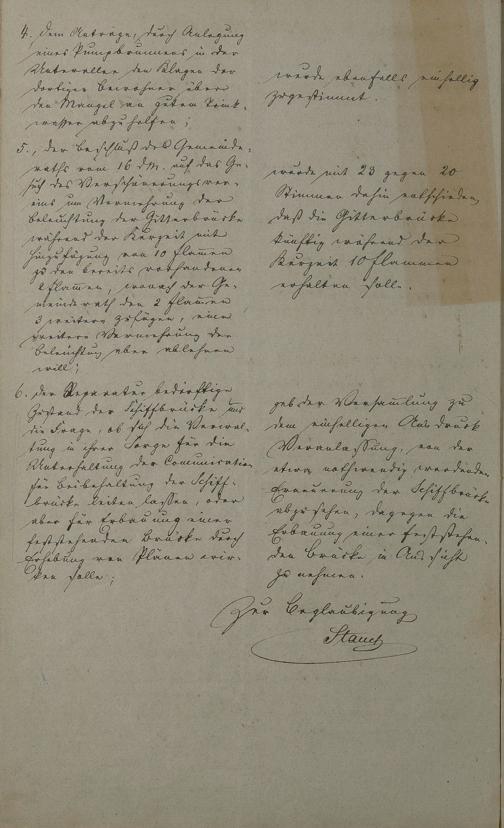 4. dem Antrage, durch Anlegung
eines Pumpbrunnens in der
Unterallee den Klagen der
dortigen Bewohner über
den Mangel an gutem Trink-
wasser abzuhelfen;
wurde ebenfalls einhellig
zugestimmt.
5., der Beschluß des Gemeinde-
raths vom 16 d. M. auf das Ge-
such des Verschönerungsver-
eins um Vermehrung der
Beleuchtung der Gitterbrücke
während der Kurzeit mit
Hinzufügung von 10 Flammen
zu den bereits vorhandenen
2 Flammen, wonach der Ge-
meinderath den 2 Flammen
3 weitere zufügen, eine
weitere Vermehrung der
Beleuchtung aber ablehnen
will;
wurde mit 23 gegen 20
Stimmen dahin entschieden
daß die Gitterbrücke
künftig während der
Kurzeit 10 Flammen
erhalten solle.
6. der Reparatur bedürftige
Zustand der Schiffbrücke und
die Frage, ob sich die Verwal-
tung in ihrer Sorge für die
Unterhaltung der Communication
für Beibehaltung der Schiff-
brücke leiten lassen, oder
aber für Erbauung einer
feststehenden Brücke durch
Erhebung von Plänen wir-
ken solle;
gab der Versammlung zu
dem einhelligen Ausdruck
Veranlassung, von der
etwa nothwendig werdenden
Erneuerung der Schiffbrücke
abzusehen, dagegen die
Erbauung einer feststehen-
den Brücke in Aussicht
zu nehmen.
Zur Beglaubigung